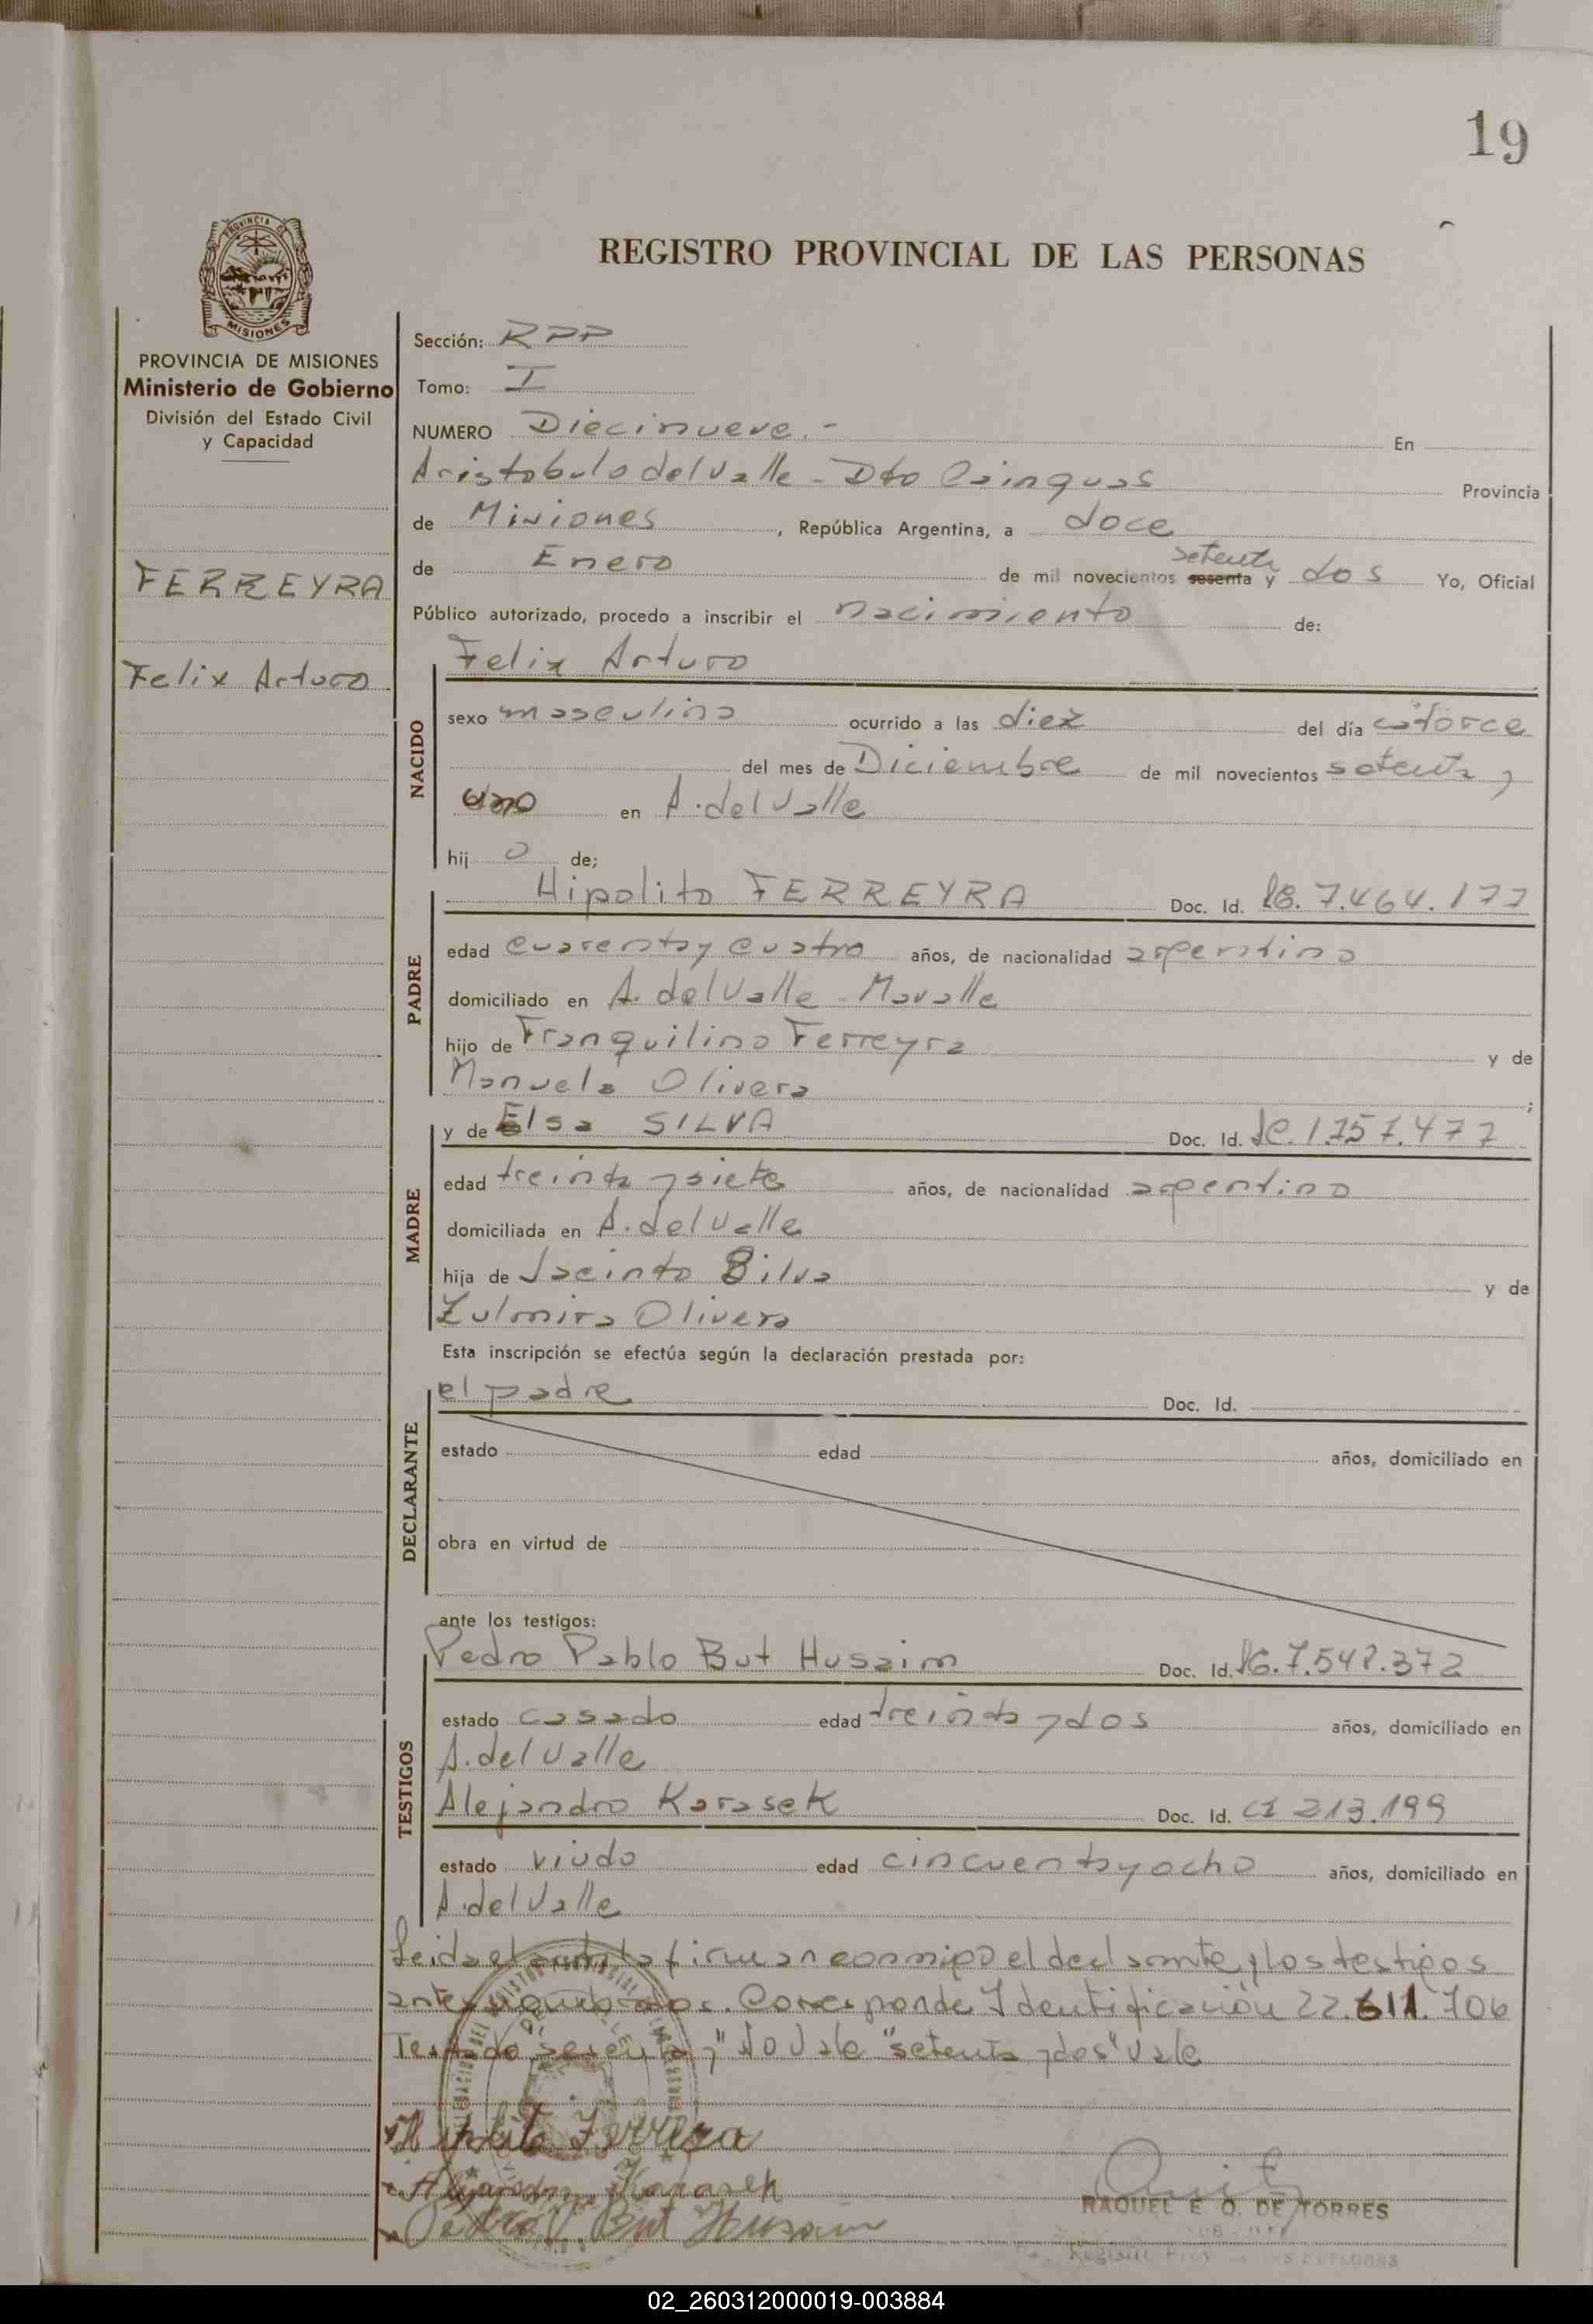 19
REGISTRO PROVINCIAL DE LAS PERSONAS
PROVINCIA DE MISIONES
Ministerio de Gobierno
División del Estado Civil
y Capacidad
FERREYRA
Felix Arturo
Sección: RPP
Tomo: I
NUMERO Diecinueve.- En
Aristobulo del Valle - Dto Cainguas Provincia
de Misiones, República Argentina, a doce
de Enero de mil novecientos sesenta y setenta dos Yo, Oficial
Público autorizado, procedo a inscribir el nacimiento de:
Felix Arturo
NACIDO
sexo masculino ocurrido a las diez del día catorce
del mes de Diciembre de mil novecientos setenta y
uno en A. del Valle
hij o de;
PADRE
Hipolito FERREYRA Doc. Id. 7.464.177
edad cuarenta y cuatro años, de nacionalidad argentino
domiciliado en A. del Valle -
hijo de Tranquilino Ferreyra y de
Manuela Olivera ;
MADRE
y de Elsa SILVA Doc. Id. 1.757.477
edad treinta y siete años, de nacionalidad argentina
domiciliada en A. del Valle
hija de Jacinto Silva y de
Zulmira Olivera
Esta inscripción se efectúa según la declaración prestada por:
DECLARANTE
el padre Doc. Id.
estado edad años, domiciliado en
obra en virtud de
ante los testigos:
TESTIGOS
Pedro Pablo But Husaim Doc. Id. 7.548.372
estado casado edad treinta y dos años, domiciliado en
A. del Valle
Alejandro Karasek Doc. Id. CI 213.199
estado viudo edad cincuenta y ocho años, domiciliado en
A. del Valle
Leida el acta la firman conmigo el declarante y los testigos
antes nombrados. Corresponde Identificación 22.611.706
Testado "sesenta y" No Vale "setenta y dos" Vale
Hipolito Ferreyra
Alejandro Karasek
Pedro P. But Husaim
RAQUEL E. O. DE TORRES
02_260312000019-003884